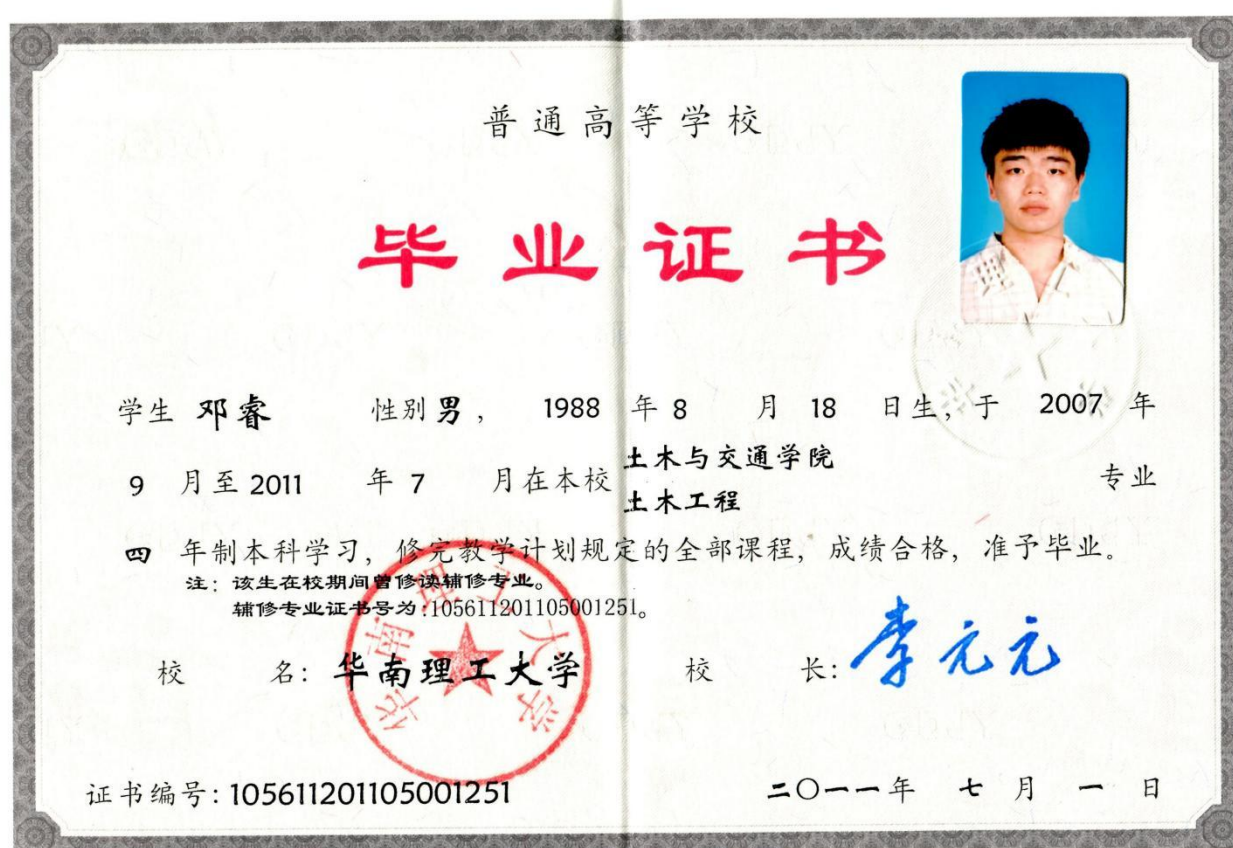 普通高等学校
毕业证书
学生 邓睿 性别 男, 1988 年 8 月 18 日生, 于 2007 年
9 月至 2011 年 7 月在本校 土木与交通学院 专业
土木工程
四 年制本科学习, 修完教学计划规定的全部课程, 成绩合格, 准予毕业。
注: 该生在校期间曾修读辅修专业。
辅修专业证书号为:105611201105001251。
校 名: 华南理工大学 校 长: 李元元
华南理工大学
证书编号: 105611201105001251 二〇一一年 七 月 一 日